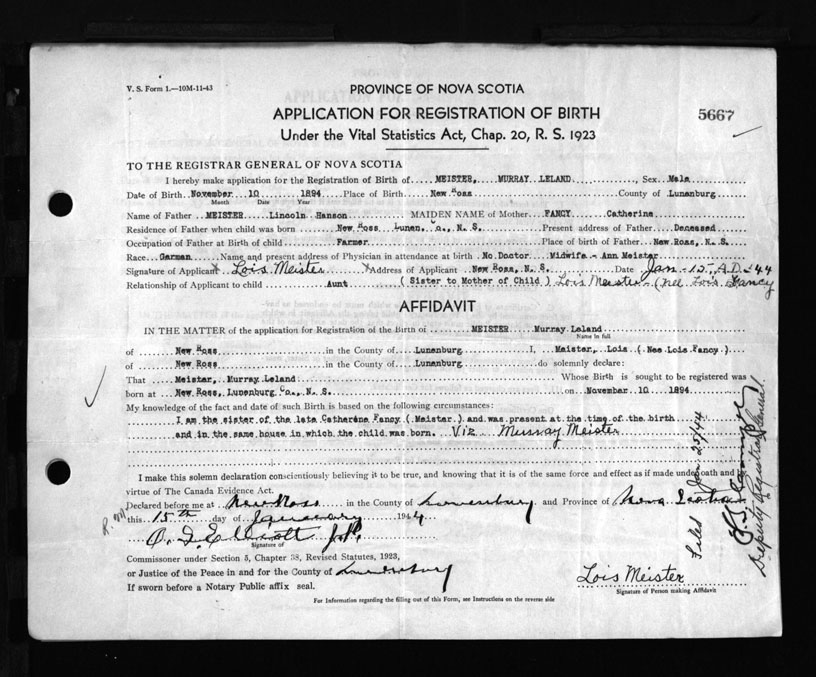 V. S. Form 1.—10M-11-43
PROVINCE OF NOVA SCOTIA
APPLICATION FOR REGISTRATION OF BIRTH
5667
Under the Vital Statistics Act, Chap. 20, R. S. 1923
TO THE REGISTRAR GENERAL OF NOVA SCOTIA
I hereby make application for the Registration of Birth of MEISTER, MURRAY LELAND, Sex Male
Date of Birth November 10 1894 Place of Birth New Ross County of Lunenburg
Month Date Year
Name of Father MEISTER Lincoln Hanson MAIDEN NAME of Mother FANCY Catherine
Residence of Father when child was born New Ross Lunen. Co., N. S. Present address of Father Deceased
Occupation of Father at Birth of child Farmer Place of birth of Father New Ross, N. S.
Race German Name and present address of Physician in attendance at birth No Doctor Midwife - Ann Meister
Signature of Applicant X Lois Meister X Address of Applicant New Ross, N. S. Date Jan - 15, A.D. - 44
Relationship of Applicant to child Aunt ( Sister to Mother of Child ) Lois Meister - (nee Lois Fancy
AFFIDAVIT
IN THE MATTER of the application for Registration of the Birth of MEISTER Murray Leland
Name in full
of New Ross in the County of Lunenburg I, Meister, Lois ( Nee Lois Fancy )
of New Ross in the County of Lunenburg do solemnly declare:
That Meister, Murray Leland Whose Birth is sought to be registered was
born at New Ross, Lunenburg Co., N. S. on November 10 1894
My knowledge of the fact and date of such Birth is based on the following circumstances:
I am the sister of the late Catherene Fancy ( Meister ) and was present at the time of the birth
and in the same house in which the child was born. Viz Murray Meister
I make this solemn declaration conscientiously believing it to be true, and knowing that it is of the same force and effect as if made under oath and by
virtue of The Canada Evidence Act.
Declared before me at New Ross in the County of Lunenburg and Province of Nova Scotia
this 15th day of January 1944
J.P.
Signature of
Commissioner under Section 5, Chapter 38, Revised Statutes, 1923,
or Justice of the Peace in and for the County of Lunenburg
If sworn before a Notary Public affix seal.
Lois Meister
Signature of Person making Affidavit
For Information regarding the filling out of this Form, see Instructions on the reverse side
Filed Jan 25/44
Deputy Registrar General.